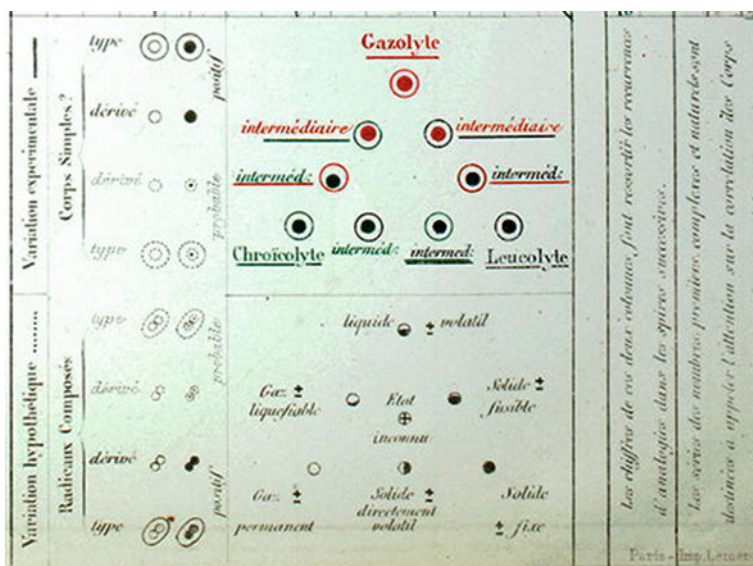 Variation expérimentale
Corps Simples?
type
dérivé
positif
dérivé
type
probable
Variation hypothétique
Radicaux Composés
type
dérivé
probable
dérivé
type
positif
Gazolyte
intermédiaire
intermédiaire
interméd:
interméd:
Chroïcolyte
interméd:
intermed:
Leucolyte
liquide ± volatil
Gaz ±
liquéfiable
Etat
inconnu
Solide ±
fusible
Gaz ±
permanent
Solide ±
directement
volatil
Solide
± fixe
Les chiffres de ces deux colonnes font ressortir les récurrences
d'analogies dans les spires successives.
Les séries des nombres premiers, complexes et naturels sont
destinées à appeler l'attention sur la corrélation des Corps
Paris - Imp. Lemer